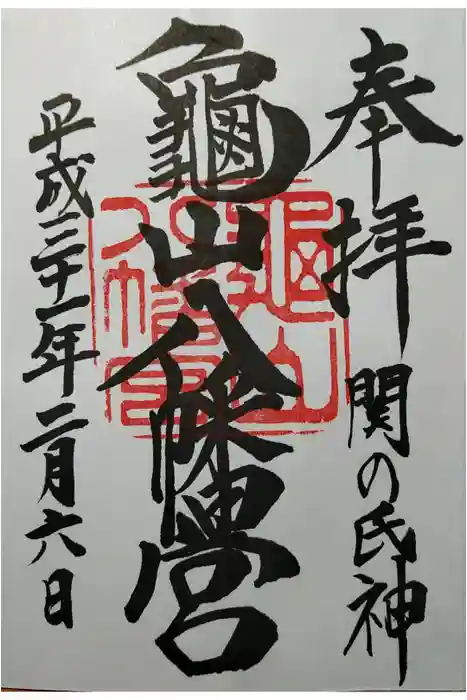 奉拝
関の氏神
龜山八幡宮
平成三十一年二月六日